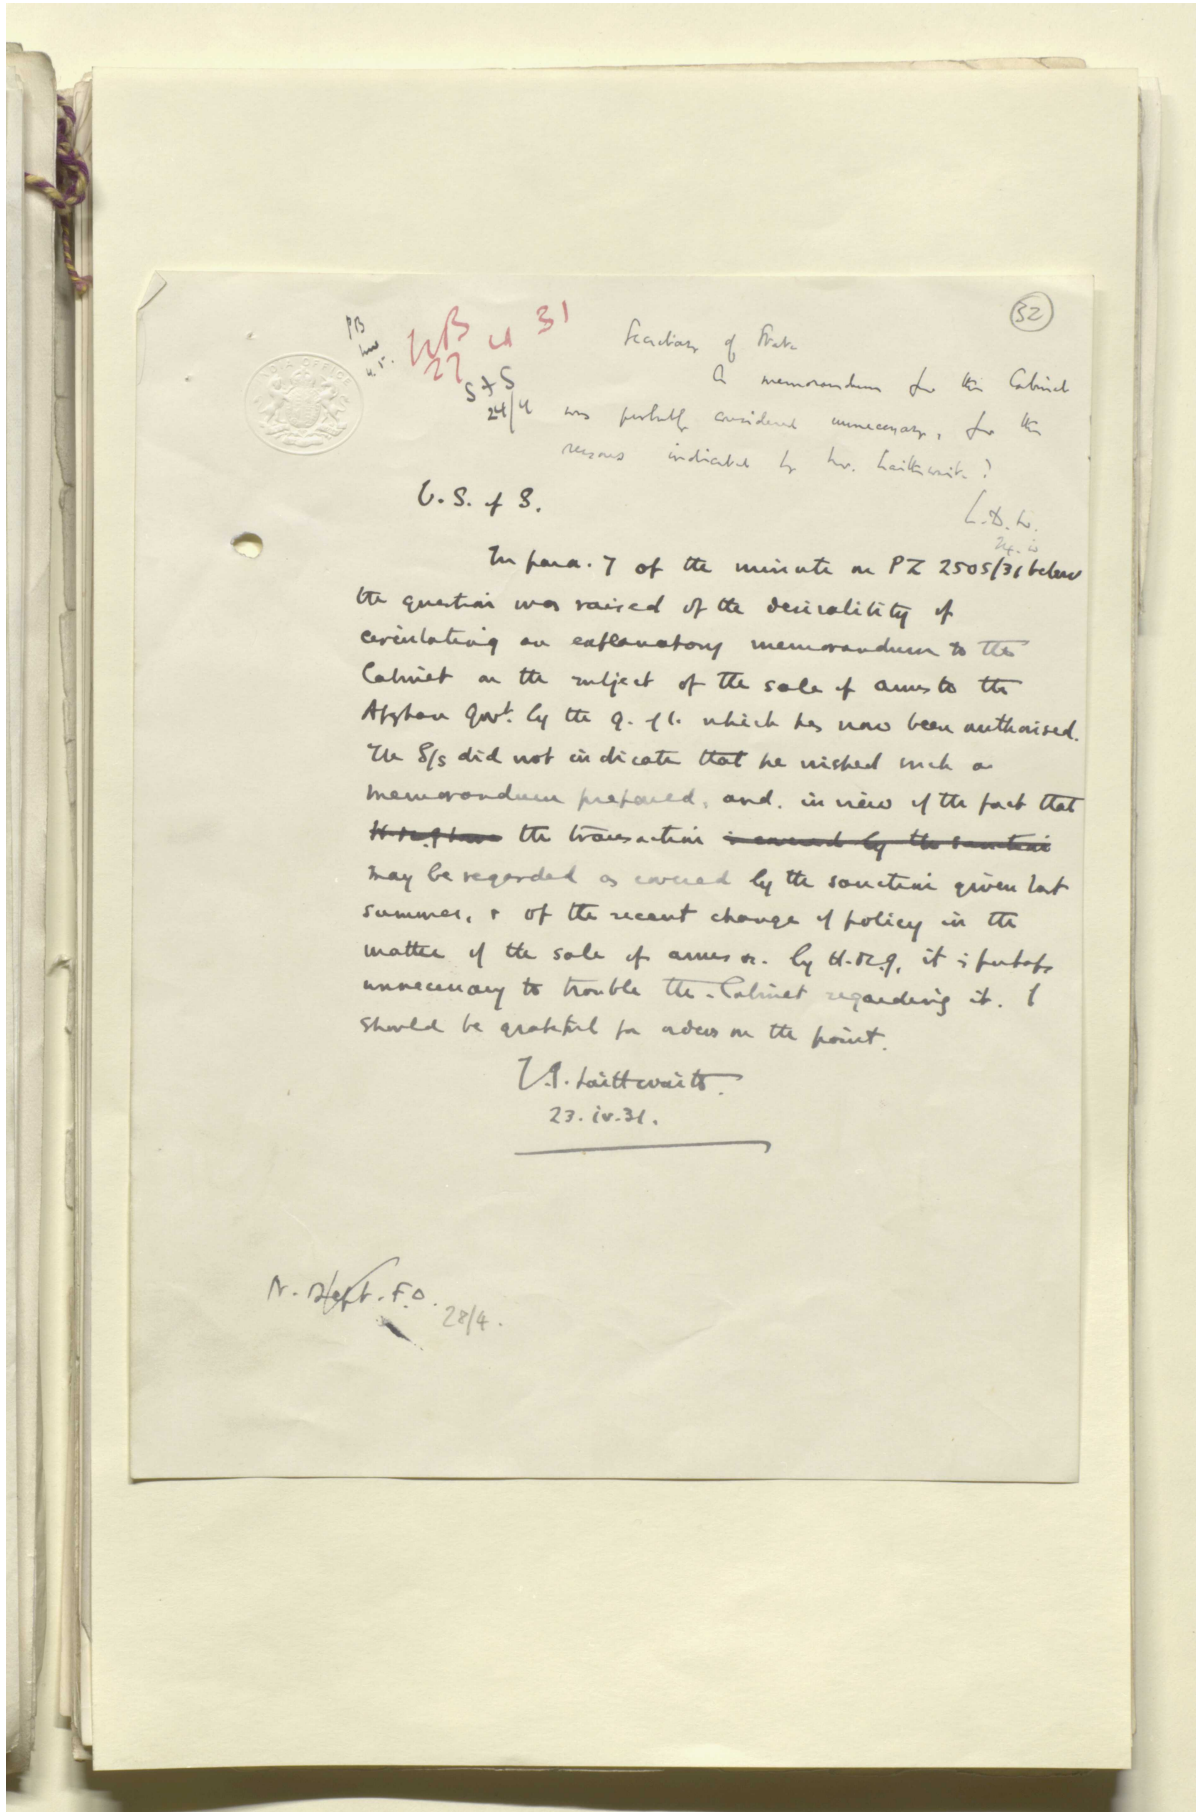 32
WB
27 4 31
S of S
24/4
INDIA OFFICE
Secretary of State
A memorandum for the Cabinet
was probably considered unnecessary, for the
reasons indicated by Mr. Laithwaite?
L.D.W.
24.iv
U.S. of S.
In para. 7 of the minute on PZ 2505/31 below
the question was raised of the desirability of
circulating an explanatory memorandum to the
Cabinet on the subject of the sale of arms to the
Afghan Govt. by the G. of I. which has now been authorised.
The S/S did not indicate that he wished such a
memorandum prepared, and, in view of the fact that
H.M.G. have the transaction is covered by the sanction
may be regarded as covered by the sanction given last
summer, & of the recent change of policy in the
matter of the sale of arms by H.M.G., it is perhaps
unnecessary to trouble the Cabinet regarding it. I
should be grateful for orders on the point.
J.G. Laithwaite.
23.iv.31.
N. Dept. F.O.
28/4.